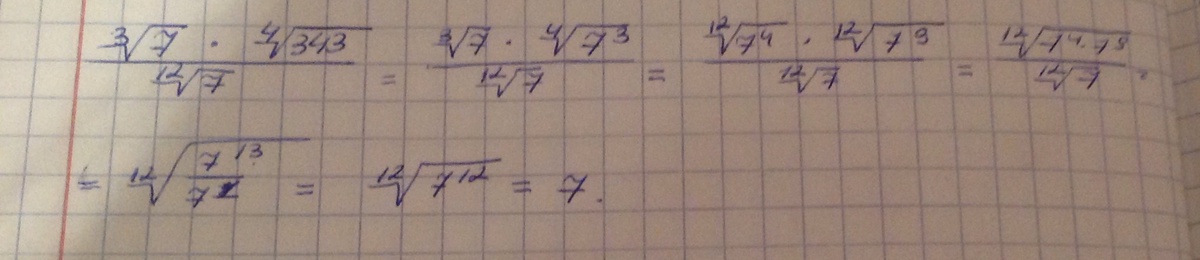 \frac{\sqrt[3]{7} \cdot \sqrt[4]{343}}{\sqrt[12]{7}} = \frac{\sqrt[3]{7} \cdot \sqrt[4]{7^3}}{\sqrt[12]{7}} = \frac{\sqrt[12]{7^4} \cdot \sqrt[12]{7^9}}{\sqrt[12]{7}} = \frac{\sqrt[12]{7^4 \cdot 7^9}}{\sqrt[12]{7}} =
= \sqrt[12]{\frac{7^{13}}{7^1}} = \sqrt[12]{7^{12}} = 7.